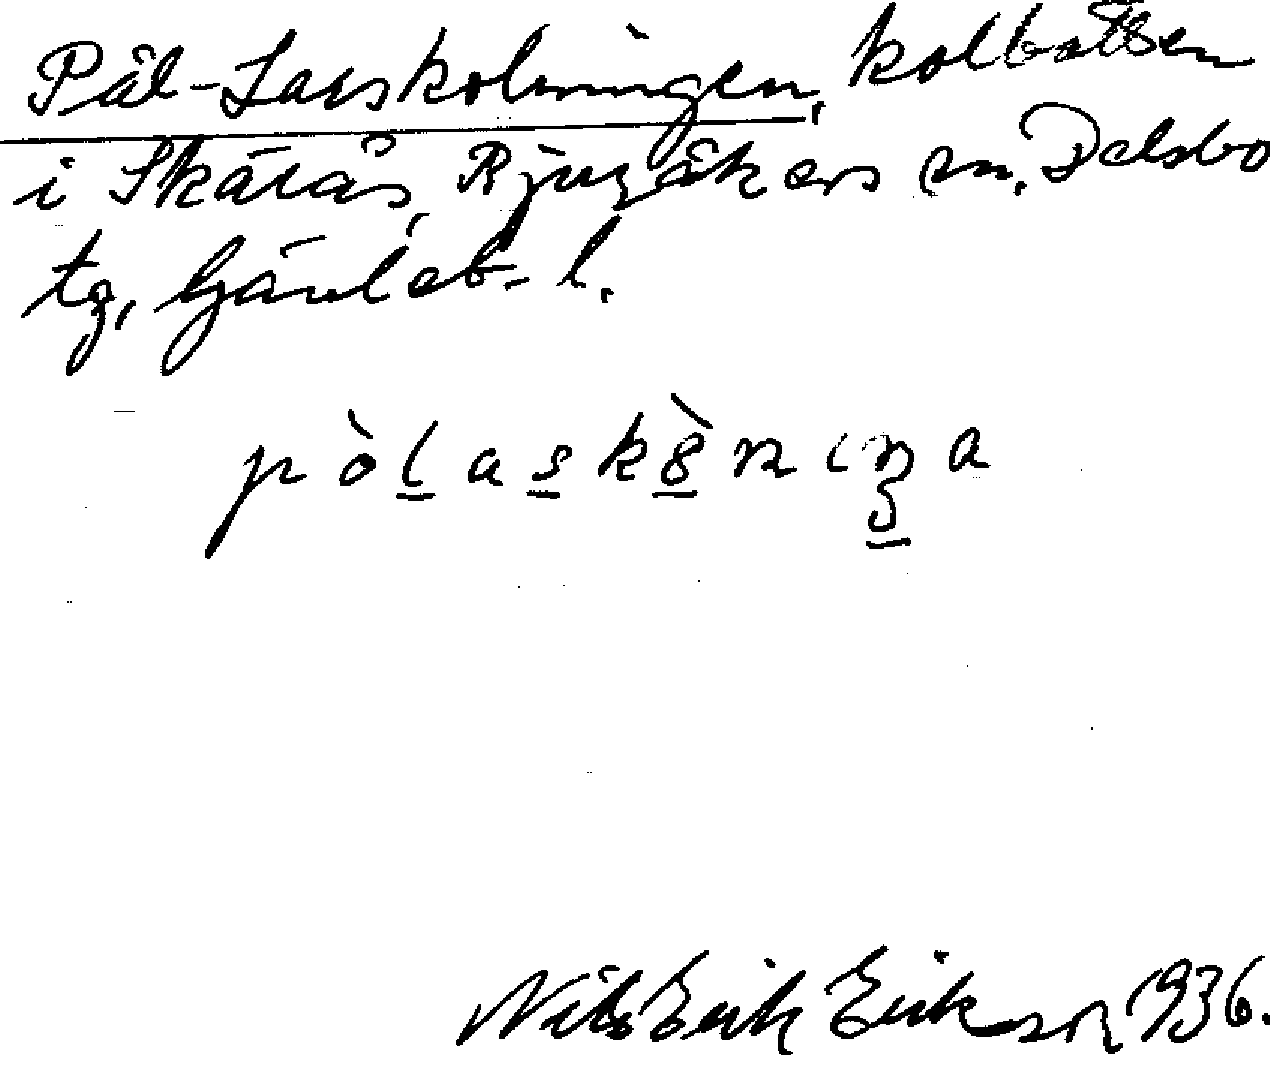 Pål-Larskolningen, kolbotten
i Skärås, Bjuråkers sn, Delsbo
tg, Gävleb. l.
pòlaskònıŋa
Nils Erik Eriksson 1936.